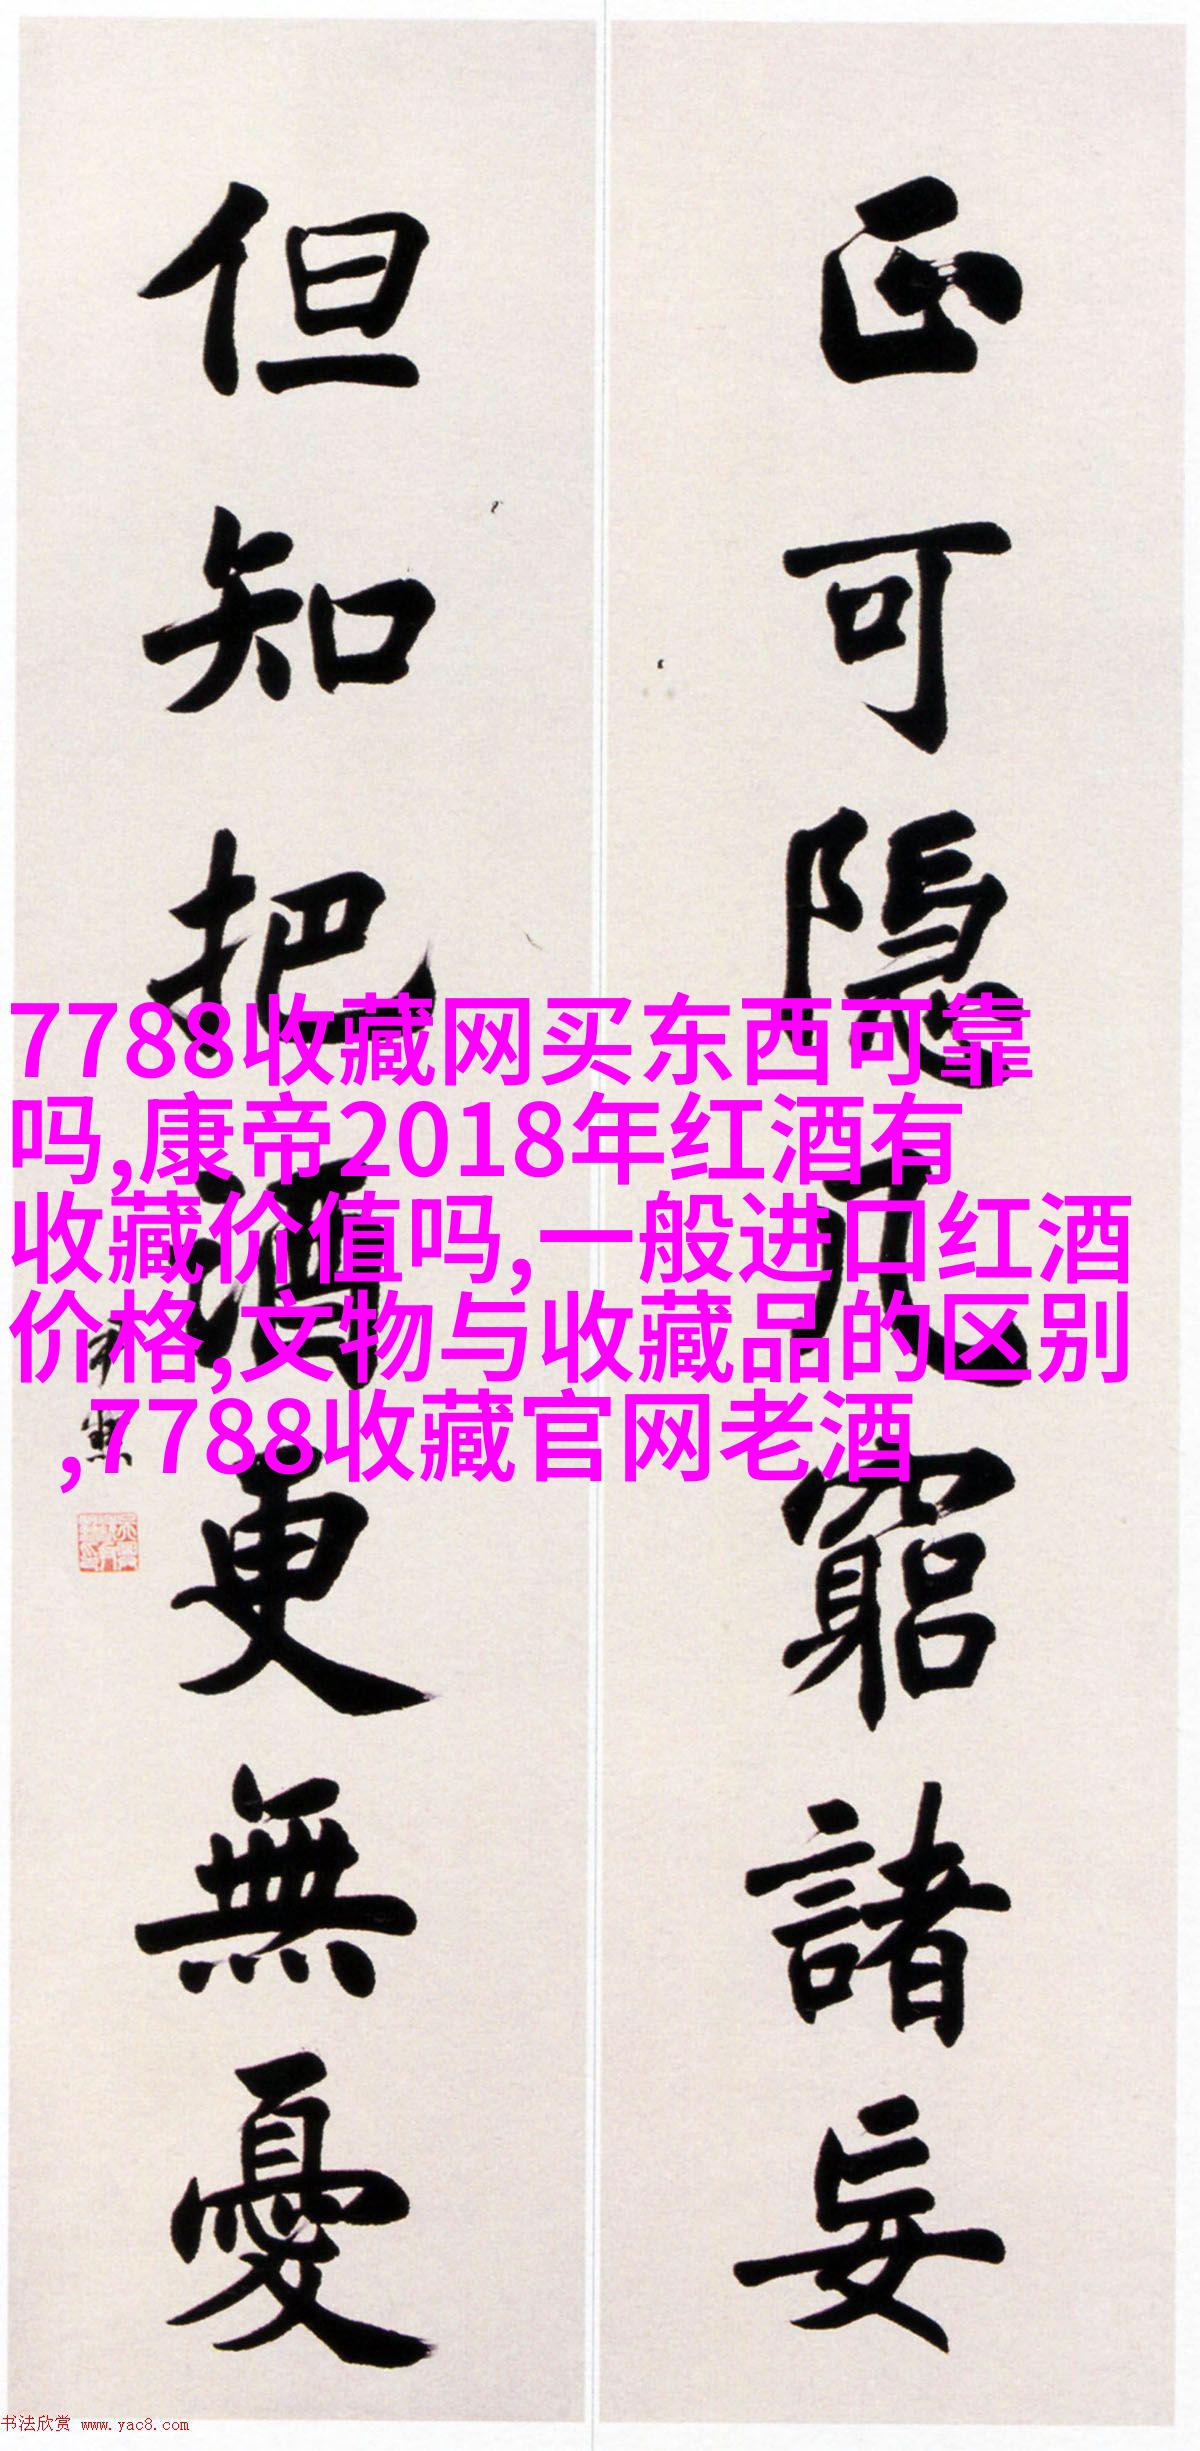 正可隱几窮諸妄
但知把酒更無憂
7788收藏网买东西可靠
吗,康帝2018年红酒有
收藏价值吗,一般进口红酒
价格,文物与收藏品的区别
,7788收藏官网老酒
书法欣赏 www.yac8.com